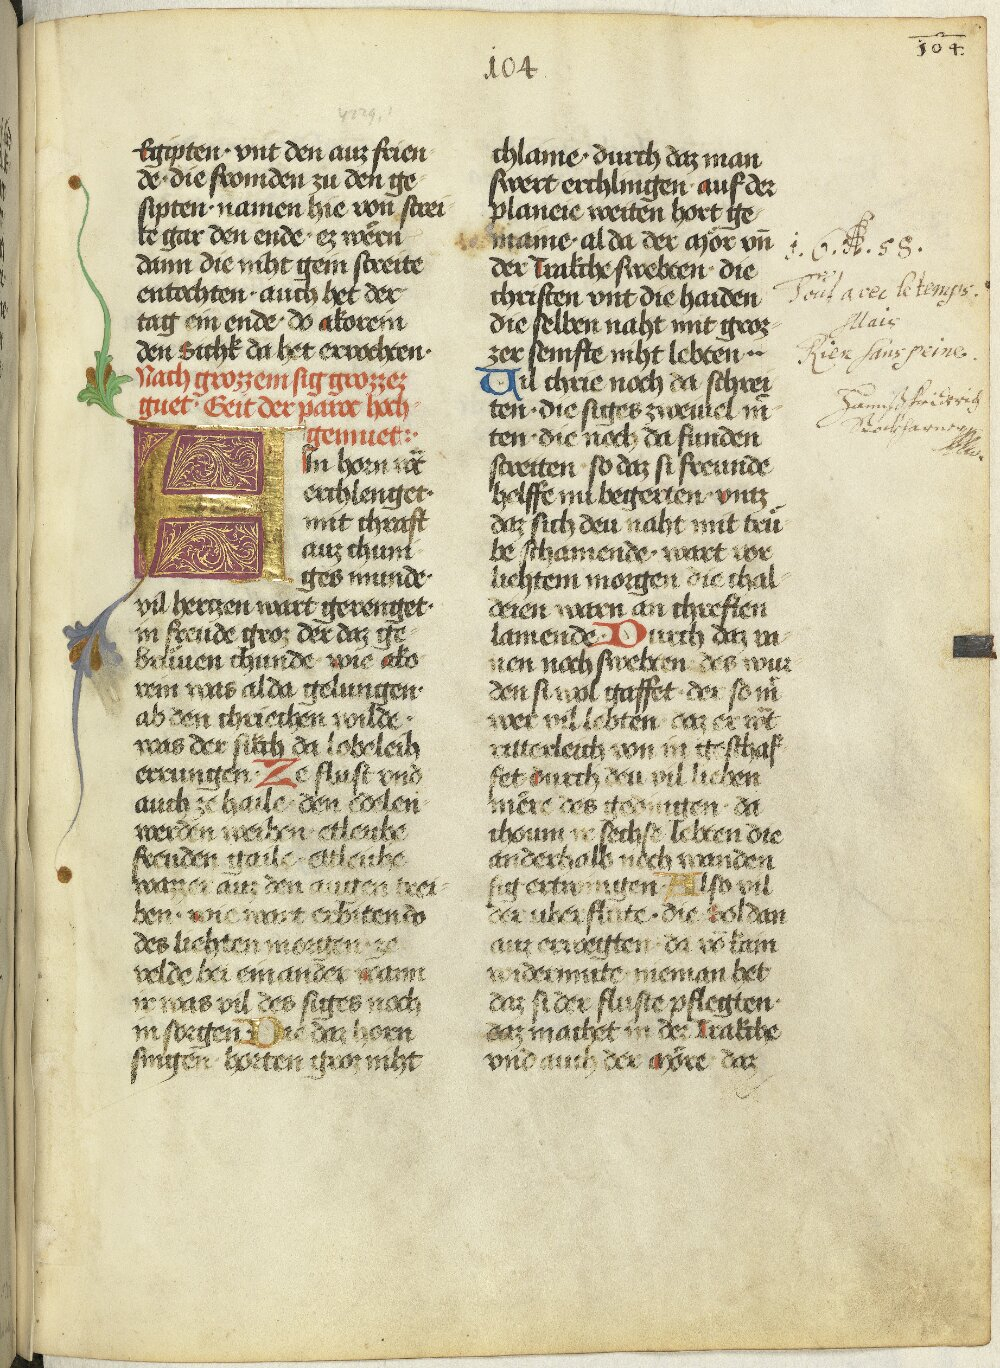 104
104
Egipten · vnt den auz frien-
de · die fromden zu den ge-
sipten · namen hie von strei-
te gar den ende · ez wern
dann die niht gein streite
entochten · auch het der
tag ein ende · do akorein
den Sichk da het ervochten ·
Nach grozzem sig grozzez
guet · Geit der paroc hoch-
gemuet :·
Ein horn wͦt
erchlenget ·
mit chraft
auz chuni-
ges munde ·
vil hertzen wart gerenget ·
in freude groz der daz ge-
brauen chunde · wie ako-
rein was alda gelungen ·
ab den chriechen wilde ·
was der sikch da lobeleich
errungen · Ze flust vnd
auch ze haile · den edelen
werden weiben · etleiche
freuden gaile · ettleiche
wazzer auz den augen trei-
ben · wie wart erbiten do
des liehten morgen · ze
velde bei einander wann
ir was vil des siges noch
in sorgen · Die daz horn
singen · horten groz niht
chlaine · durch daz man
swert erchlingen · auf der
planeie weiten hort ge-
maine · al da der Mor vn̄
der Trakche swebten · die
christen vnt die haiden
die selben naht mit groz-
zer semfte niht lebten ··
Vil chrie noch da schrei-
ten · die siges zweiuel mͥ-
ten · die noch da funden
streiten · so daz si freunde
helffe ni begerten · vntz
daz sich deu naht mit trů-
be schamende · wart vor
liehtem morgen die chal-
deien warn an chreften
lamende · Durch daz in
nen noch swebten · des wur-
den si wol gaffet · der so in̄
wer vil lebten · daz er wͦt
ritterleich von in geschaf-
fet durch deu vil lieben
mere des gedingen · da
choum ir sechse lebten die
anderhalb noch wanden
sig ertwingen · Also vil
der uberflute · die soldan
auz erweiten · da vō kain
widermute · nieman het
daz si der fluste pflegten ·
daz machet in der Trakche
vnd auch der Möre · daz
1.6.58.
Tout avec le temps.
Mais
Rien sans peine.